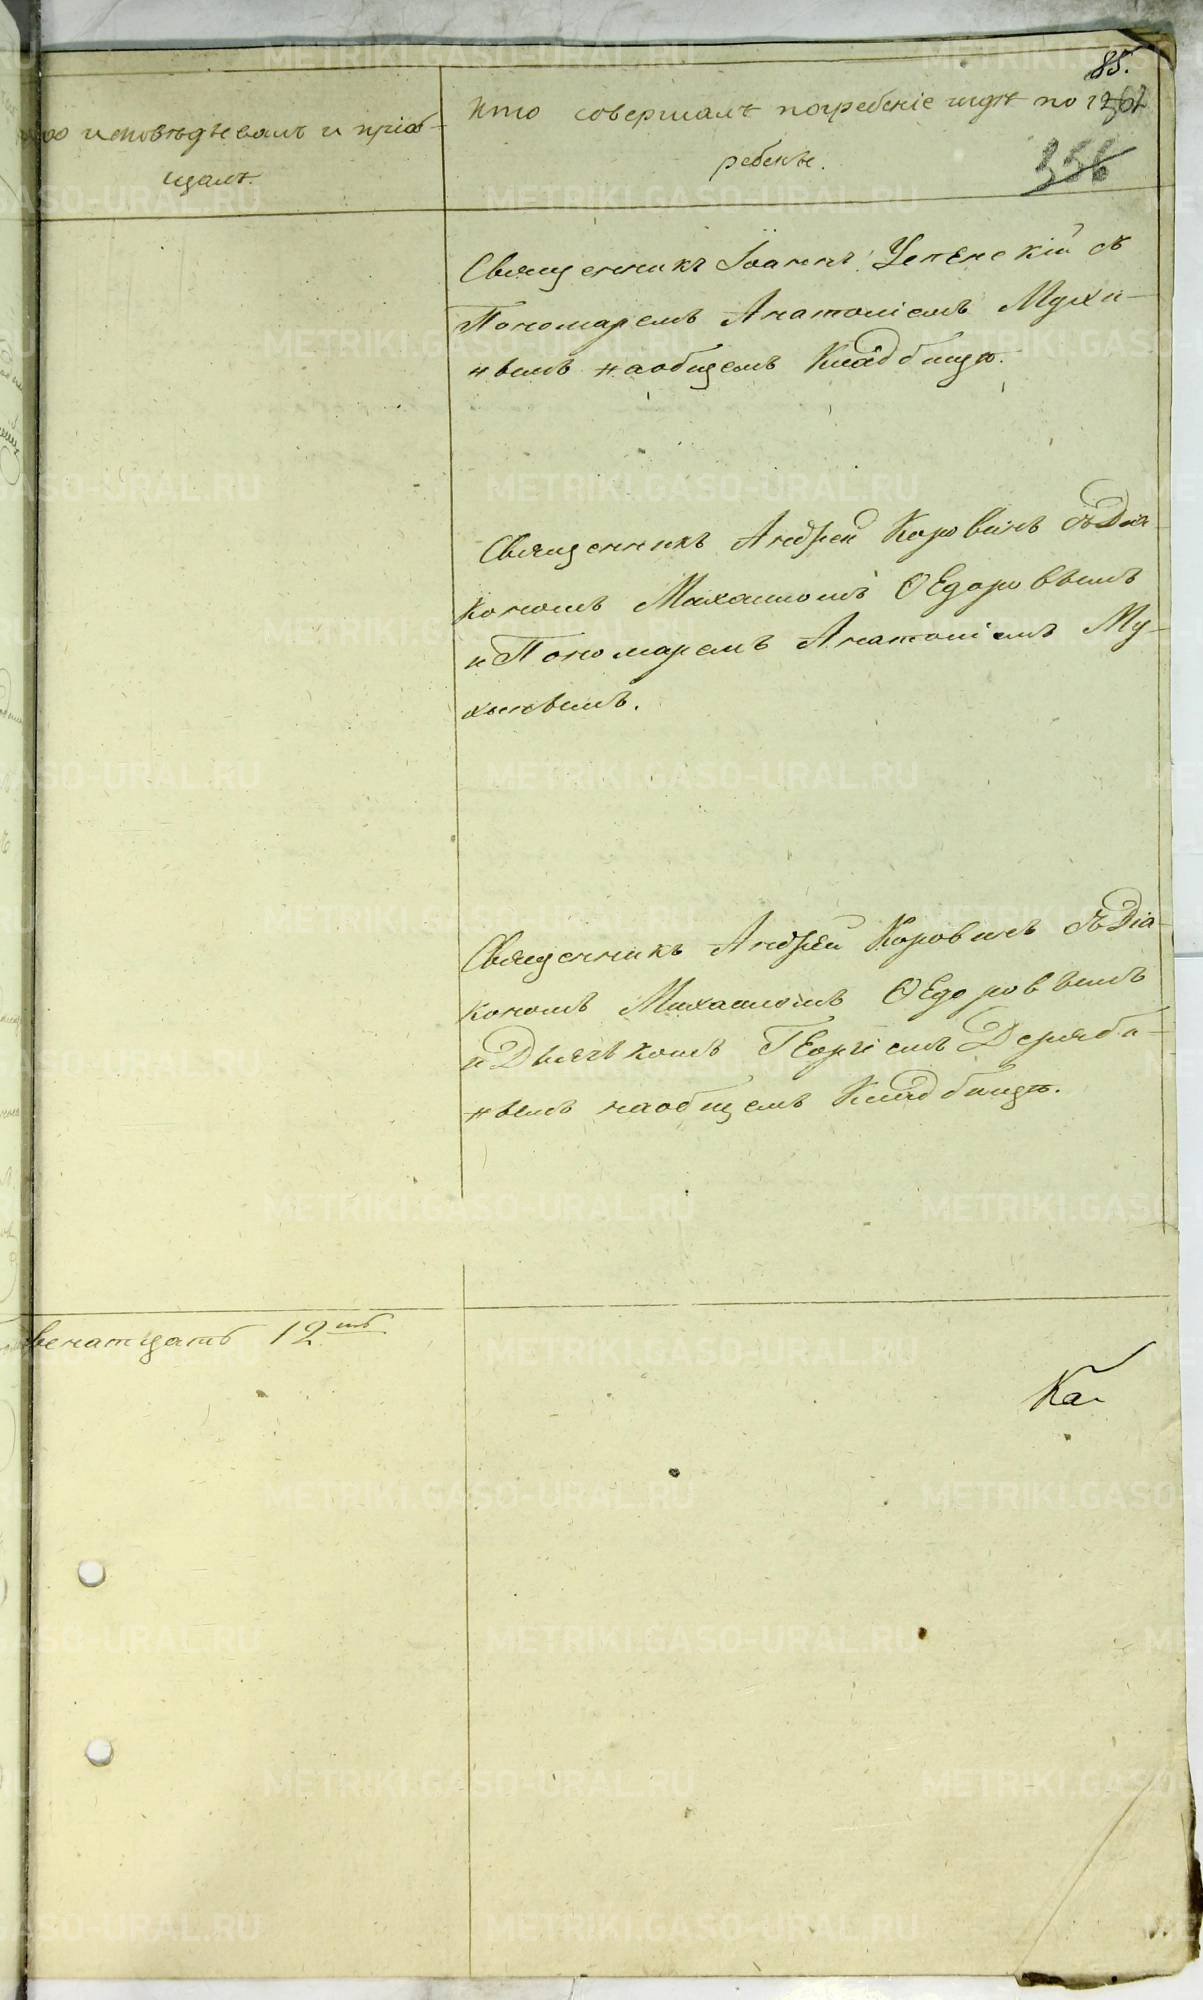 85.
исповѣдывалъ и пріоб-
щалъ.
Кто совершалъ погребеніе и гдѣ по г
ребенъ.
356
Священникъ Іоаннъ Успенскій съ
Пономаремъ Анатоліемъ Мухи-
нымъ на общемъ Кладбищѣ.
Священникъ Андрей Коровинъ съ Діа-
кономъ Михаиломъ Ѳедоровымъ
и Пономаремъ Анатоліемъ Му-
хинымъ.
Священникъ Андрей Коровинъ съ Діа-
кономъ Михаиломъ Ѳедоровымъ
и Дьячькомъ Георгіемъ Деряби-
нымъ на общемъ Кладбищѣ.
венатцать 12
Ка
METRIKI.GASO-URAL.RU